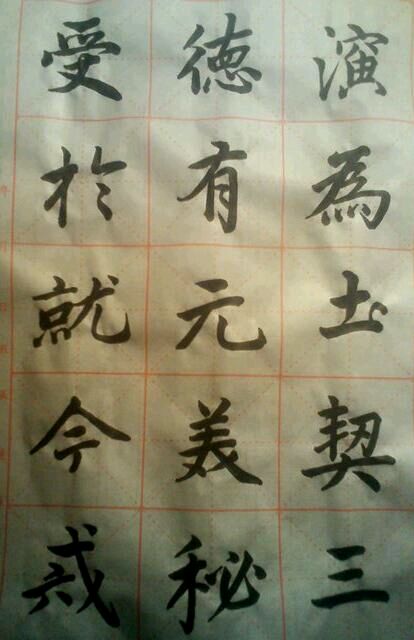 演為土契三
德有元美秘
受於就今戒